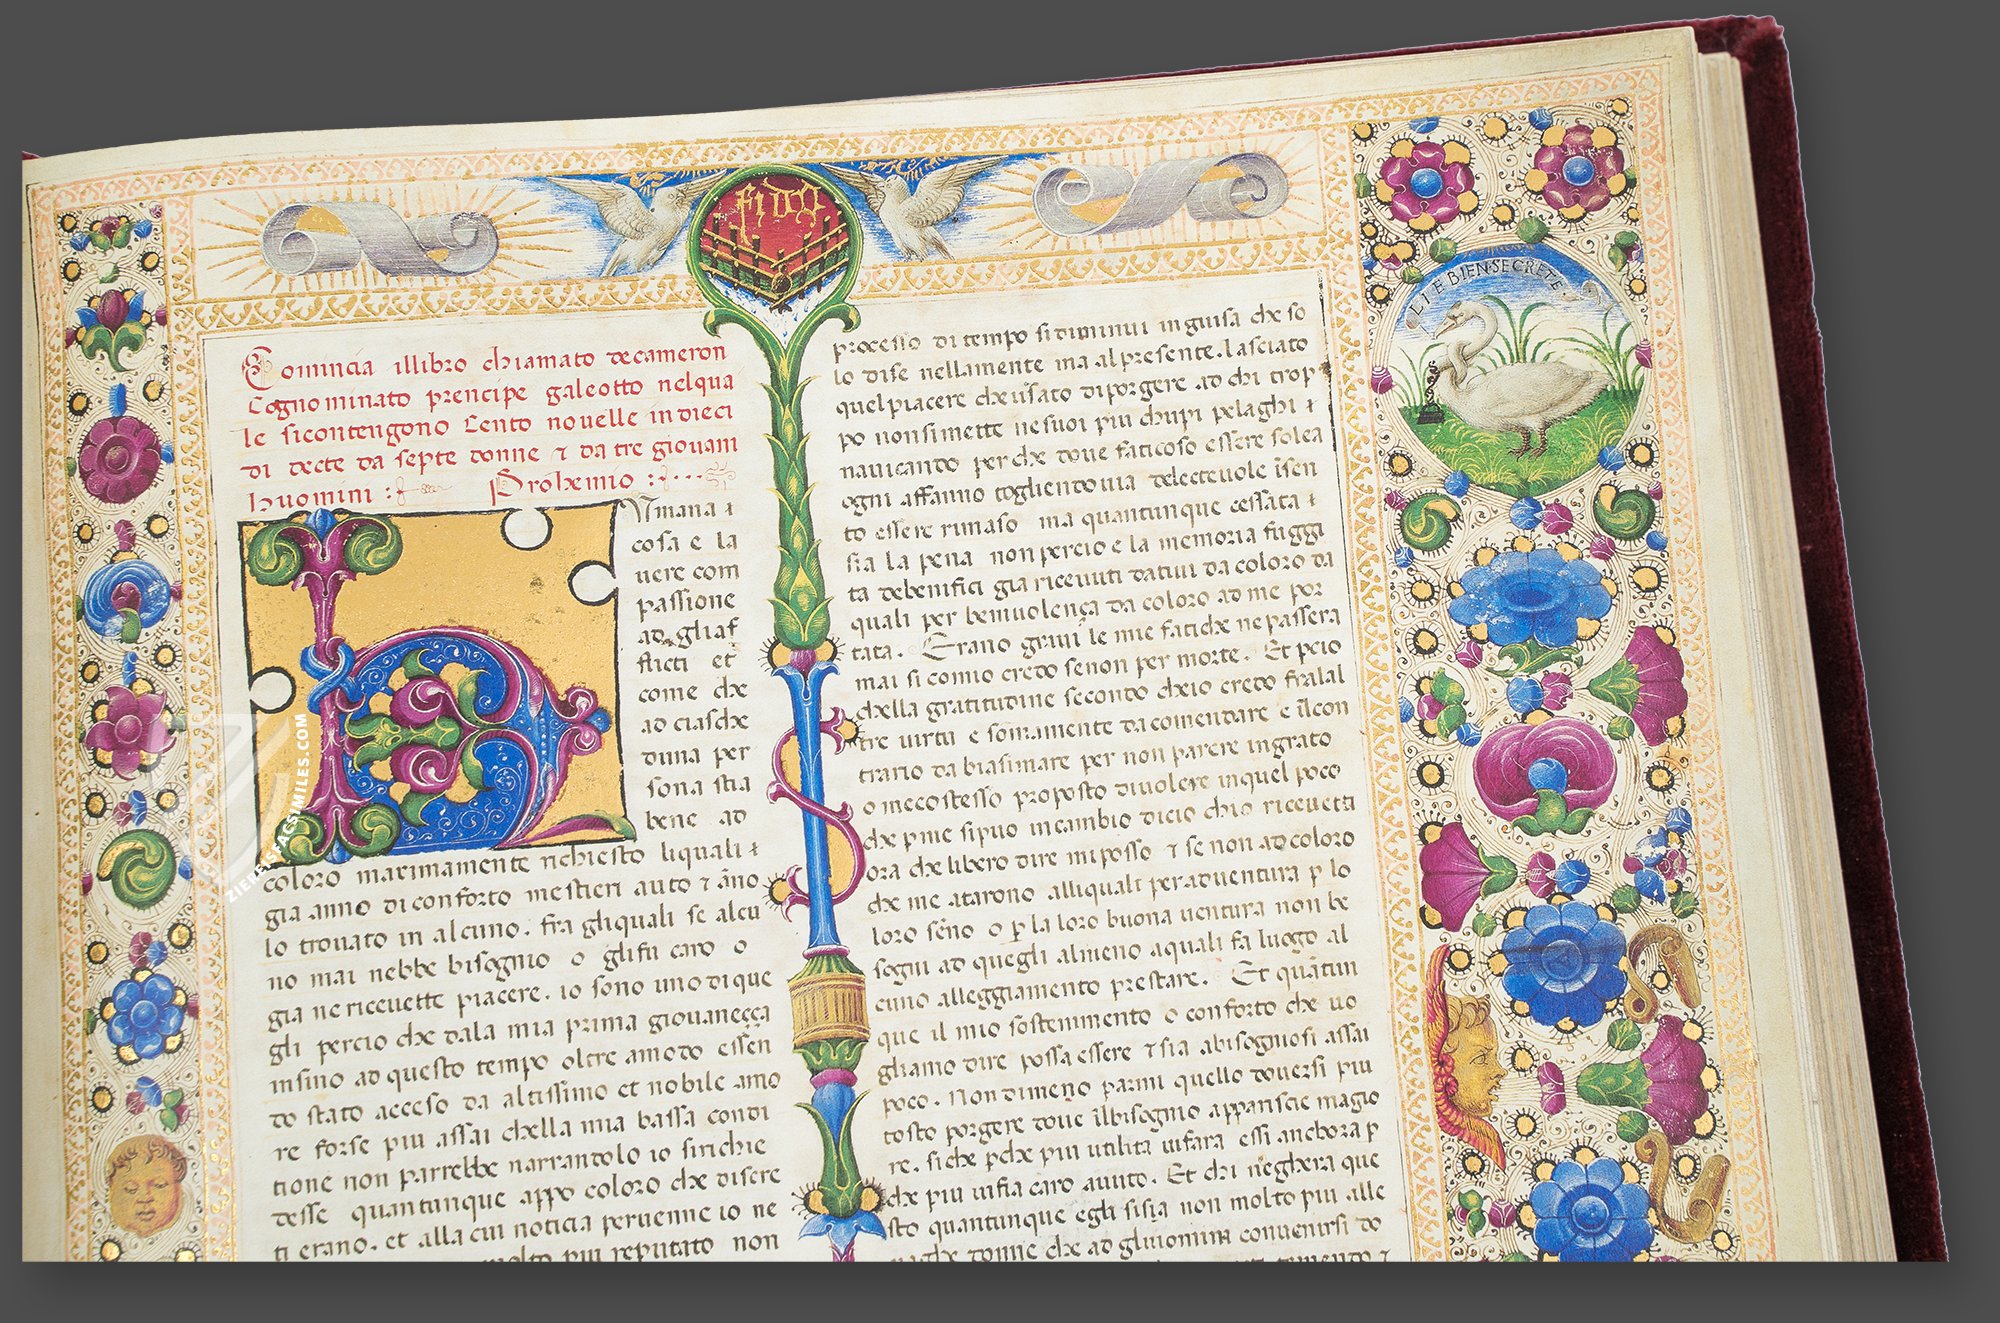 fido
LIE BIEN SECRETE.
Comincia illibro chiamato decameron
Cognominato prencipe galeotto nelqua
le sicontengono Cento nouelle in dieci
di decte da septe donne & da tre giouani
huomini : Prohemio :
Vmana &
cosa e la
uere com
passione
ad gliaf
flicti et
come che
ad ciasche
duna per
sona stia
bene ad
coloro maximamente richiesto liquali &
gia anno diconforto mestieri auto & ãno
lo trouato in alcuno. fra gliquali se alcu
no mai nebbe bisognio o glifu caro o
gia ne riceuette piacere. io sono uno di que
gli percio che dala mia prima giouaneçça
insino ad questo tempo oltre amodo essen
do stato acceso da altissimo et nobile amo
re forse piu assai chella mia bassa condi
tione non parrebbe narrandolo io sirichie
desse quantunque appo coloro che discre
ti erano. et alla cui noticia peruenne io ne
molto piu reputato non
processo di tempo si diminui inguisa che so
lo dise nellamente ma al presente. lasciato
quel piacere cheusato diporgere ad chi trop
po nonsimette nesuoi piu chupi pelaghi &
nauicando per che doue faticoso essere solea
ogni affanno togliendo uia delecteuole ĩsen
to essere rimaso ma quantunque cessata &
sia la pena non percio e la memoria fuggi
ta debenifici gia riceuuti datiui da coloro da
quali per beniuolença da coloro ad me por
tata. Erano graui le mie fatiche ne passera
mai si comio credo senon per morte. Et pcio
chella gratitudine secondo cheio credo fralal
tre uirtu e sommamente dacomendare e ilcon
trario da biasimare per non parere ingrato
o mecostesso proposto diuolere inquel poco
che p me sipuo incambio dicio chio riceuetti
ora che libero dire mi posso & se non ad coloro
che me atarono alliquali peraduentura p lo
loro sẽno o p la loro buona uentura non be
sogni ad quegli almeno aquali fa luogo al
cuno alleggiamento prestare. Et quãtun
que il mio sostenimento o conforto che uo
gliamo dire possa essere & sia abisogniosi assai
poco. Non dimeno parmi quello douersi piu
tosto porgere doue ilbisognio apparisce magio
re. si che pche piu utilita uifara essi anchora p
che piu uisia caro auuto. Et chi neghera que
sto quantunque egli sisia non molto piu alle
uaghe donne che ad gliuomini conuenirsi do
ZIEREIS FACSIMILES.COM